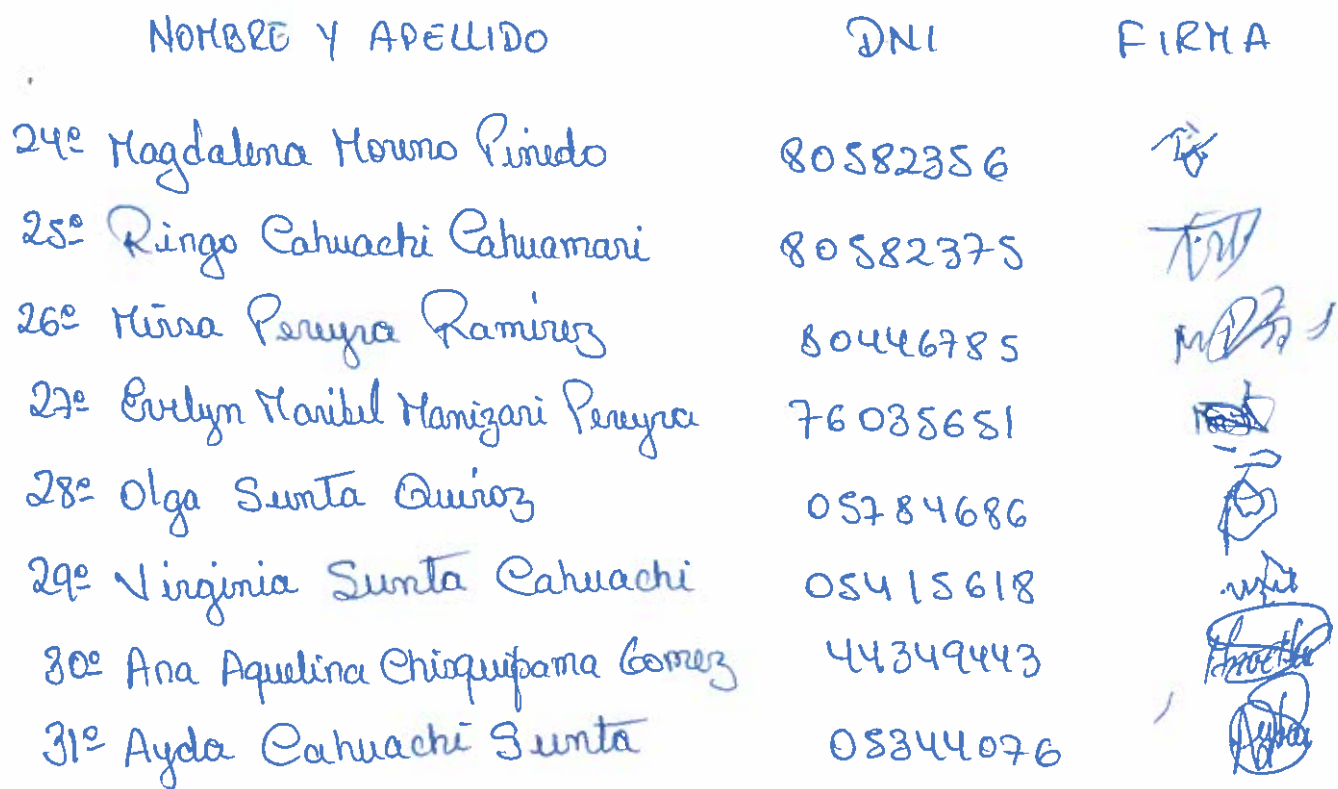 NOMBRE Y APELLIDO DNI FIRMA
24º Magdalena Moreno Pinedo 80582356
25º Ringo Cahuachi Cahuamari 80582375
26º Mirsa Pereyra Ramirez 80446785
27º Evelyn Maribel Manizari Pereyra 76035651
28º Olga Sunta Quiroz 05784686
29º Virginia Sunta Cahuachi 05415618
30º Ana Aquelina Chioquipama Gomez 44349443
31º Ayda Cahuachi Sunta 05344076